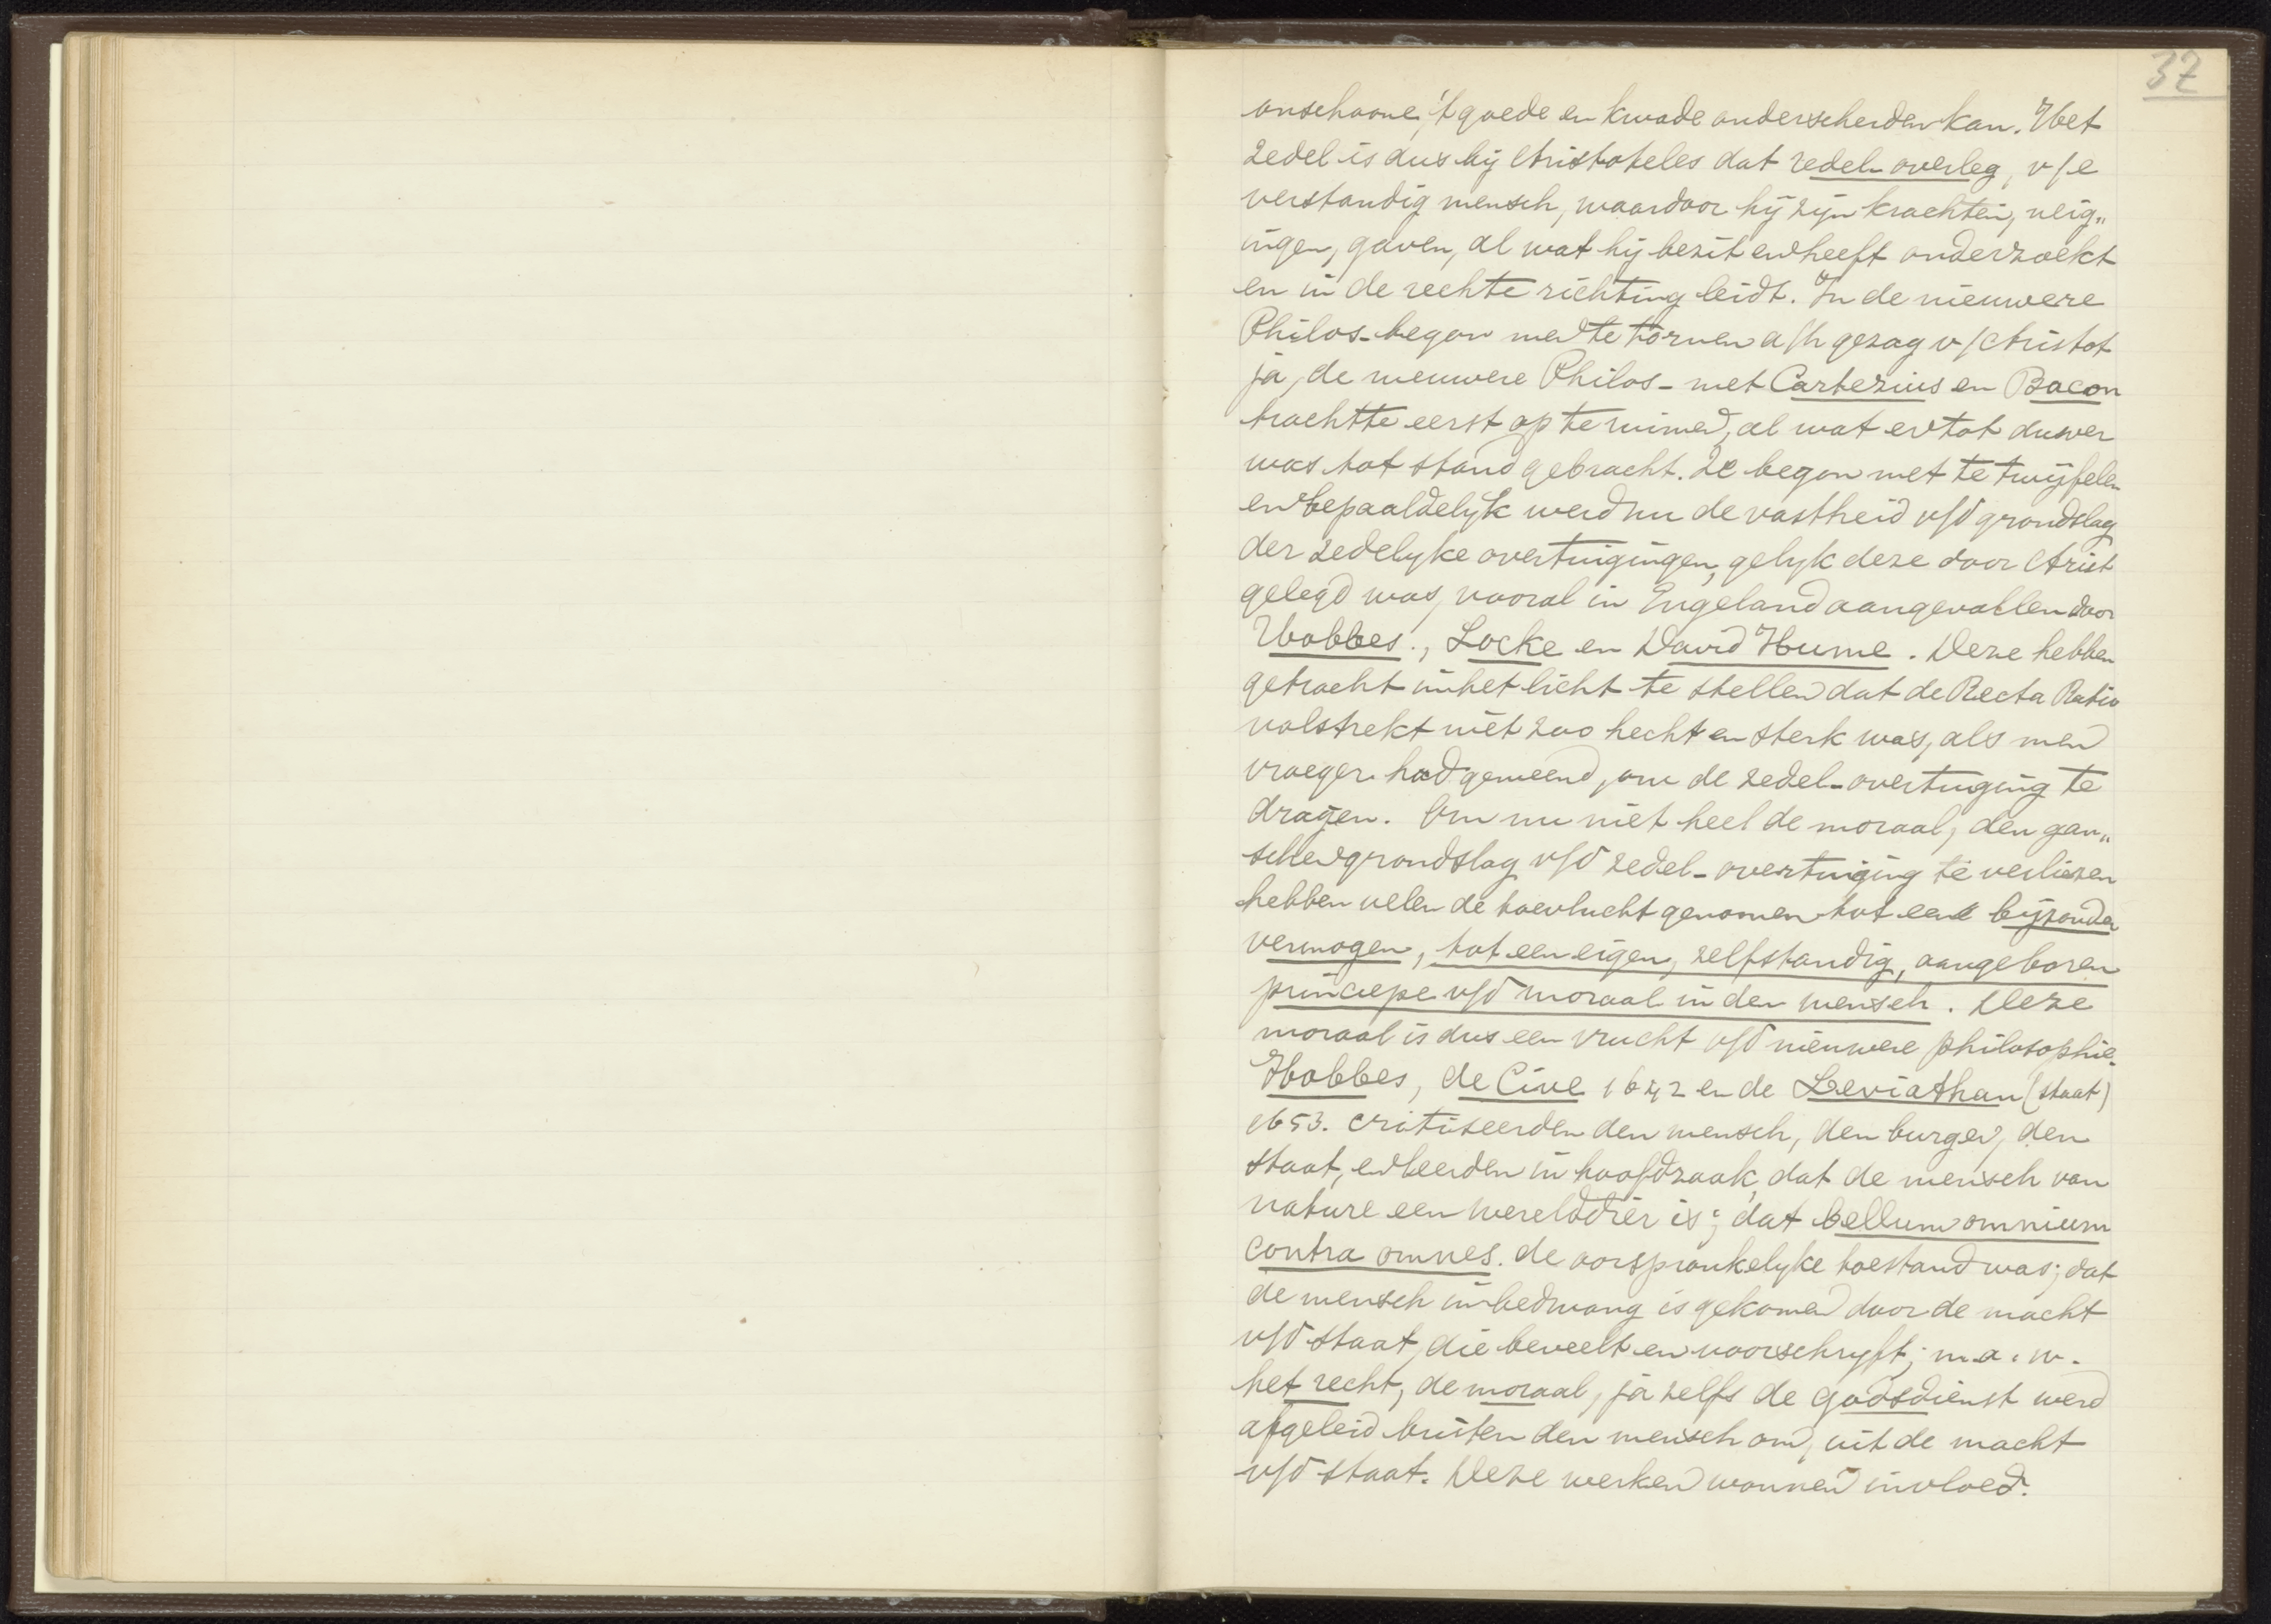 37
onschoone, 't goede en kwade onderscheiden kan. Het
zedel is dus bij Aristoteles dat redel. overleg, v/e
verstandig mensch, waardoor hij zijn krachten, neig„
ingen, gaven, al wat hij bezit en heeft onderzoekt
en in de rechte richting leidt. In de nieuwere
Philos. begon men te tornen a/h gezag v/Aristot
ja, de nieuwere Philos. met Cartezius en Bacon
trachtte eerst op te ruimen, al wat er tot dusver
was tot stand gebracht. Ze begon met te twijfelen
en bepaaldelyk werd nu de vastheid v/d grondslag
der zedelyke overtuigingen, gelyk deze door Arist
gelegd was, vooral in Engeland aangevallen door
Hobbes., Locke en David Hume. Deze hebben
getracht in het licht te stellen dat de Recta Ratio
volstrekt niet zoo hecht en sterk was, als men
vroeger had gemeend, om de zedel. overtuiging te
dragen. Om nu niet heel de moraal, den gan„
schen grondslag v/d zedel. overtuiging te verliezen
hebben velen de toevlucht genomen tot een bijzonder
vermogen, tot een eigen, zelfstandig, aangeboren
principe v/d moraal in den mensch. Deze
moraal is dus een vrucht v/d nieuwere philosophie.
Hobbes, de Cive 1642 en de Leviathan (staat)
1653. critiseerden den mensch, den burger, den
staat, en leerden in hoofdzaak, dat de mensch van
nature een werelddier is; dat bellum omnium
contra omnes. de oorspronkelyke toestand was; dat
de mensch in bedwang is gekomen door de macht
v/d staat, die beveelt en voorschryft; m.a.w.
het recht, de moraal, ja zelfs de godsdienst werd
afgeleid buiten den mensch om, uit de macht
v/d staat. Deze werken wonnen invloed.